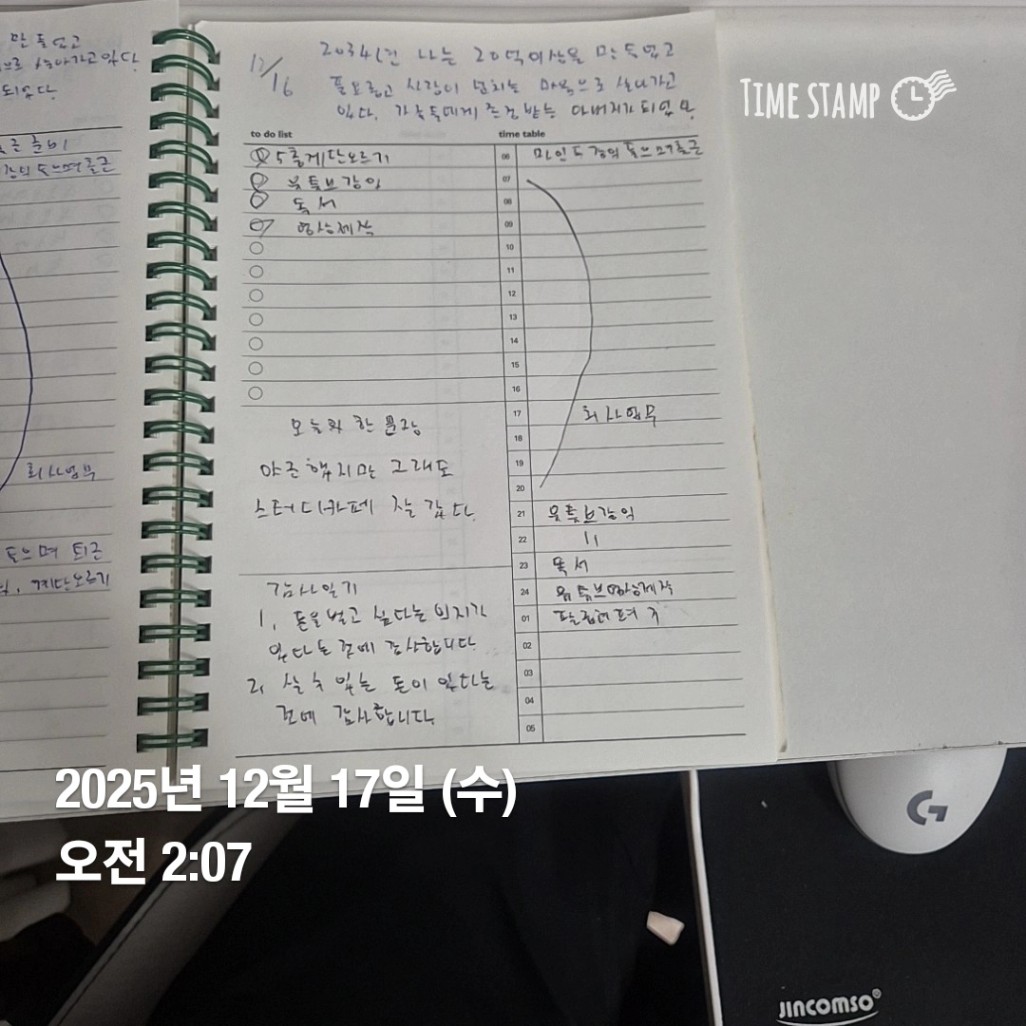 만들었고
살아가고 있다
되었다
출근 준비
강의 들으며 출근
회사업무
들으며 퇴근
계단오르기
12/16
2034년 나는 20억이상을 만들었고
풍요롭고 사랑이 넘치는 마음으로 살아가고
있다. 가족들에게 존경 받는 아버지가 되었다
TIME STAMP
to do list
time table
5층계단오르기
유튜브강의
독서
영상제작
06 마인드 강의 들으며 출근
07
08
09
10
11
12
13
14
15
16
17 회사업무
18
19
20
21 유튜브강의
22 〃
23 독서
24 유튜브영상제작
01
02
03
04
05
오늘의 한 문장
야근했지만 그래도
스터디카페 잘 갔다.
감사일기
1. 돈을 벌고 싶다는 의지가
있다는 것에 감사합니다
2. 쓸 수 있는 돈이 있다는
것에 감사합니다
2025년 12월 17일 (수)
오전 2:07
G
JINCOMSO®